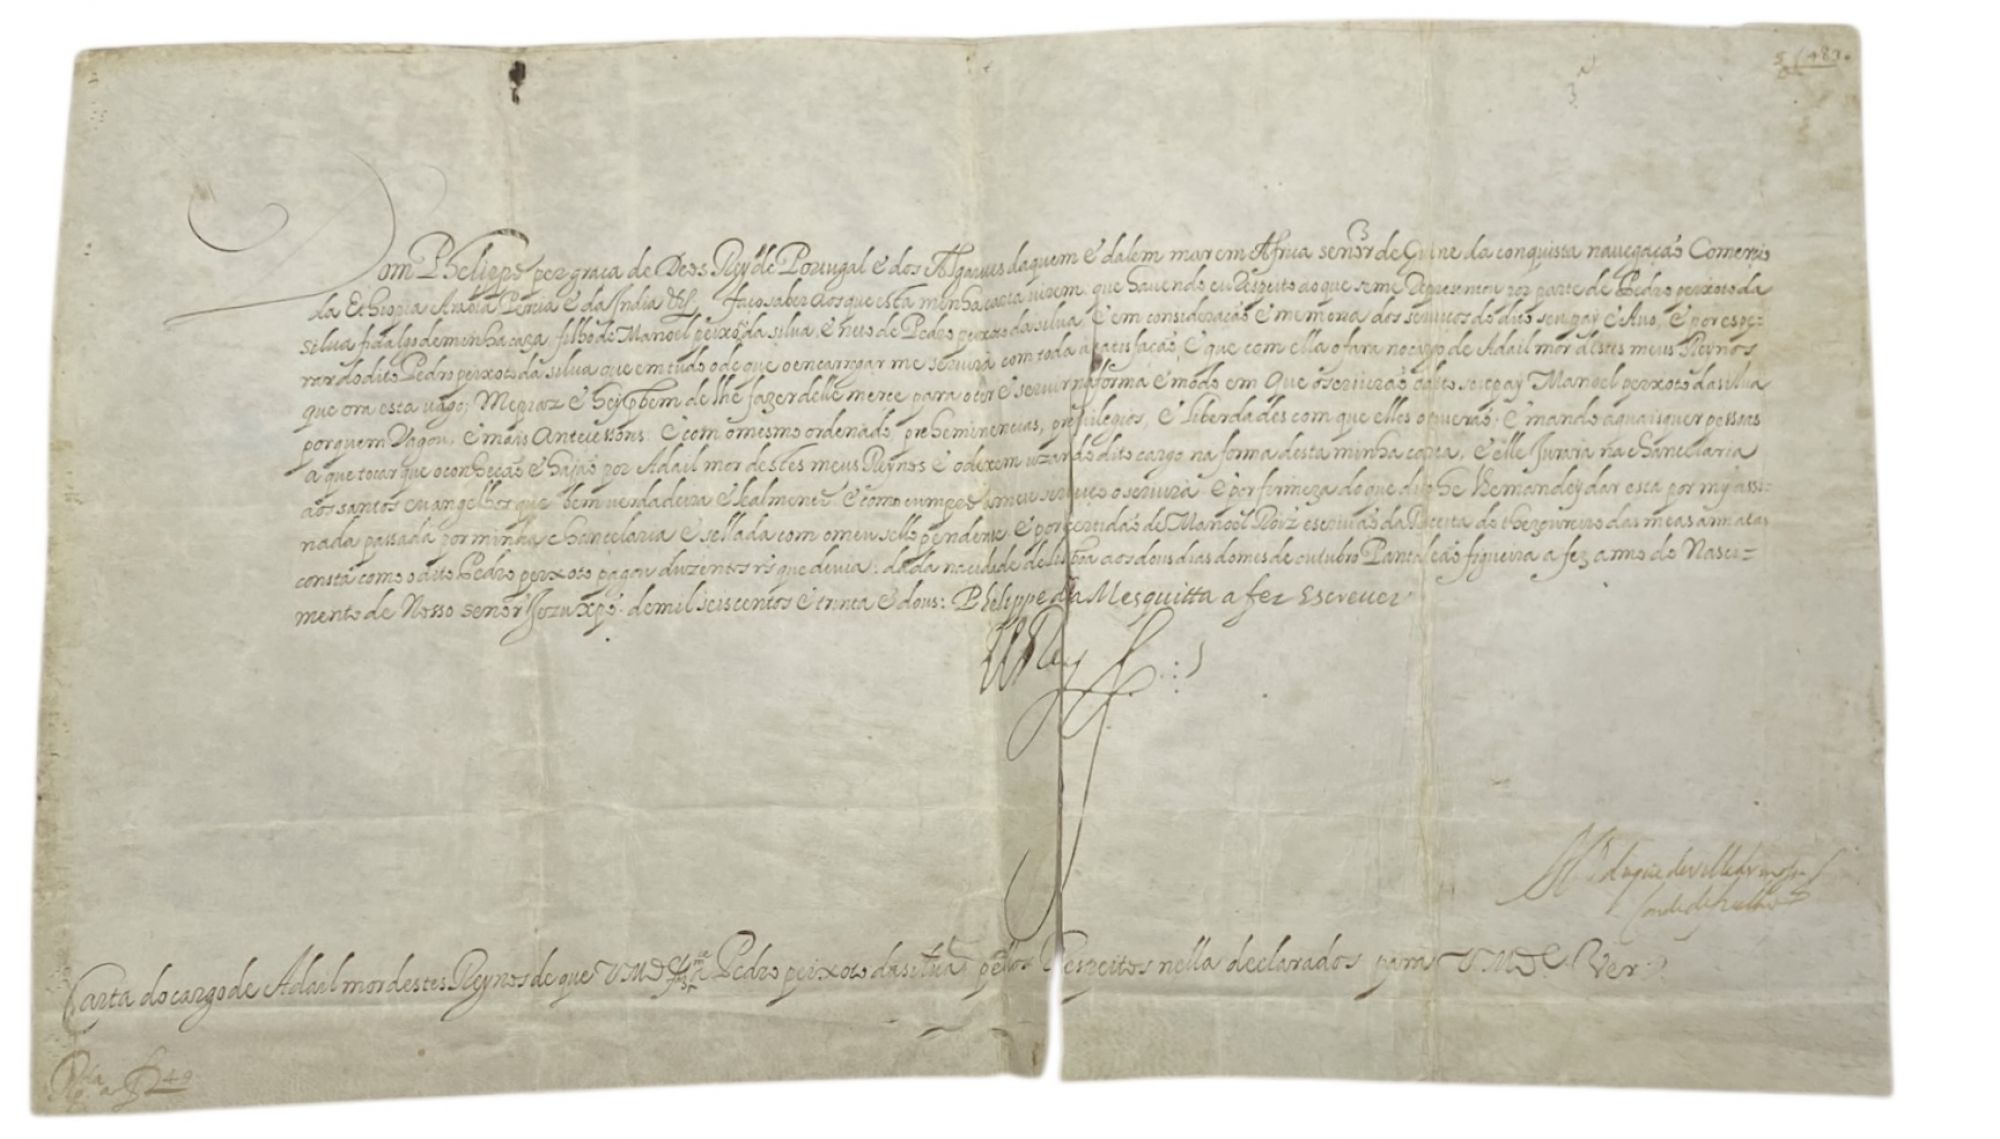 Dom Phelippe por graça de Deos Rey de Portugal e dos Algarues daquem e dalem mar em Africa senor de Guine da conquista nauegação Comerçio
da Ethiopia Arabia Persia e da India &c. faço saber aos que esta minha carta virem que hauendo eu Respeito ao que se me Representou por parte de Pedro peixoto da
silua fidalgo de minha caza filho de Manoel peixoto da silua e neto de Pedro peixoto da silua, e em consideração e memoria dos seruiços do dito seu pay e Auo, e por espe-
rar do dito Pedro peixoto da silua que em tudo o de que o encarregar me seruirá com toda a satisfação, e que com ella o fara no cargo de Adail mor destes meus Reynos
que ora esta vago; Me praz e hey por bem de lhe fazer delle merce para o ter e seruir na forma e modo em que o seruirão o dito seu pay Manoel peixoto da silua
por quem Vagou, e mais Antecessores. e com o mesmo ordenado, preheminencias, preuilegios, e liberdades com que elles o tiuerão: e mando a quaisquer pessoas
a que tocar que o conheção e hajão por Adail mor destes meus Reynos e o dexem uzar do dito cargo na forma desta minha carta, e elle Jurara na chancelaria
aos santos euangelhos que bem verdadeira e lealmente e como cumpre a meu seruiço o seruirá e por firmeza do que dito he lhe mandey dar esta por my assi-
nada passada por minha chancelaria e sellada com o meu sello pendente e por certidão de Manoel Roiz escriuão da Receita do thezoureiro das meas annatas
consta como o dito Pedro peixoto pagou duzentos rs que deuia: dada na cidade de lisboa aos dous dias do mes de outubro Pantaleão figueira a fez anno do Nasci-
mento de Nosso senor Jezu xpo. de mil seiscentos e trinta e dous: Phelippe da Mesquitta a fez Escreuer
El Rey
duque de villahermosa
Conde de ficalho
Carta do cargo de Adail mor destes Reynos de que V Mde faz merce a Pedro peixoto da silua pellos Respeitos nella declarados para V Mde Ver